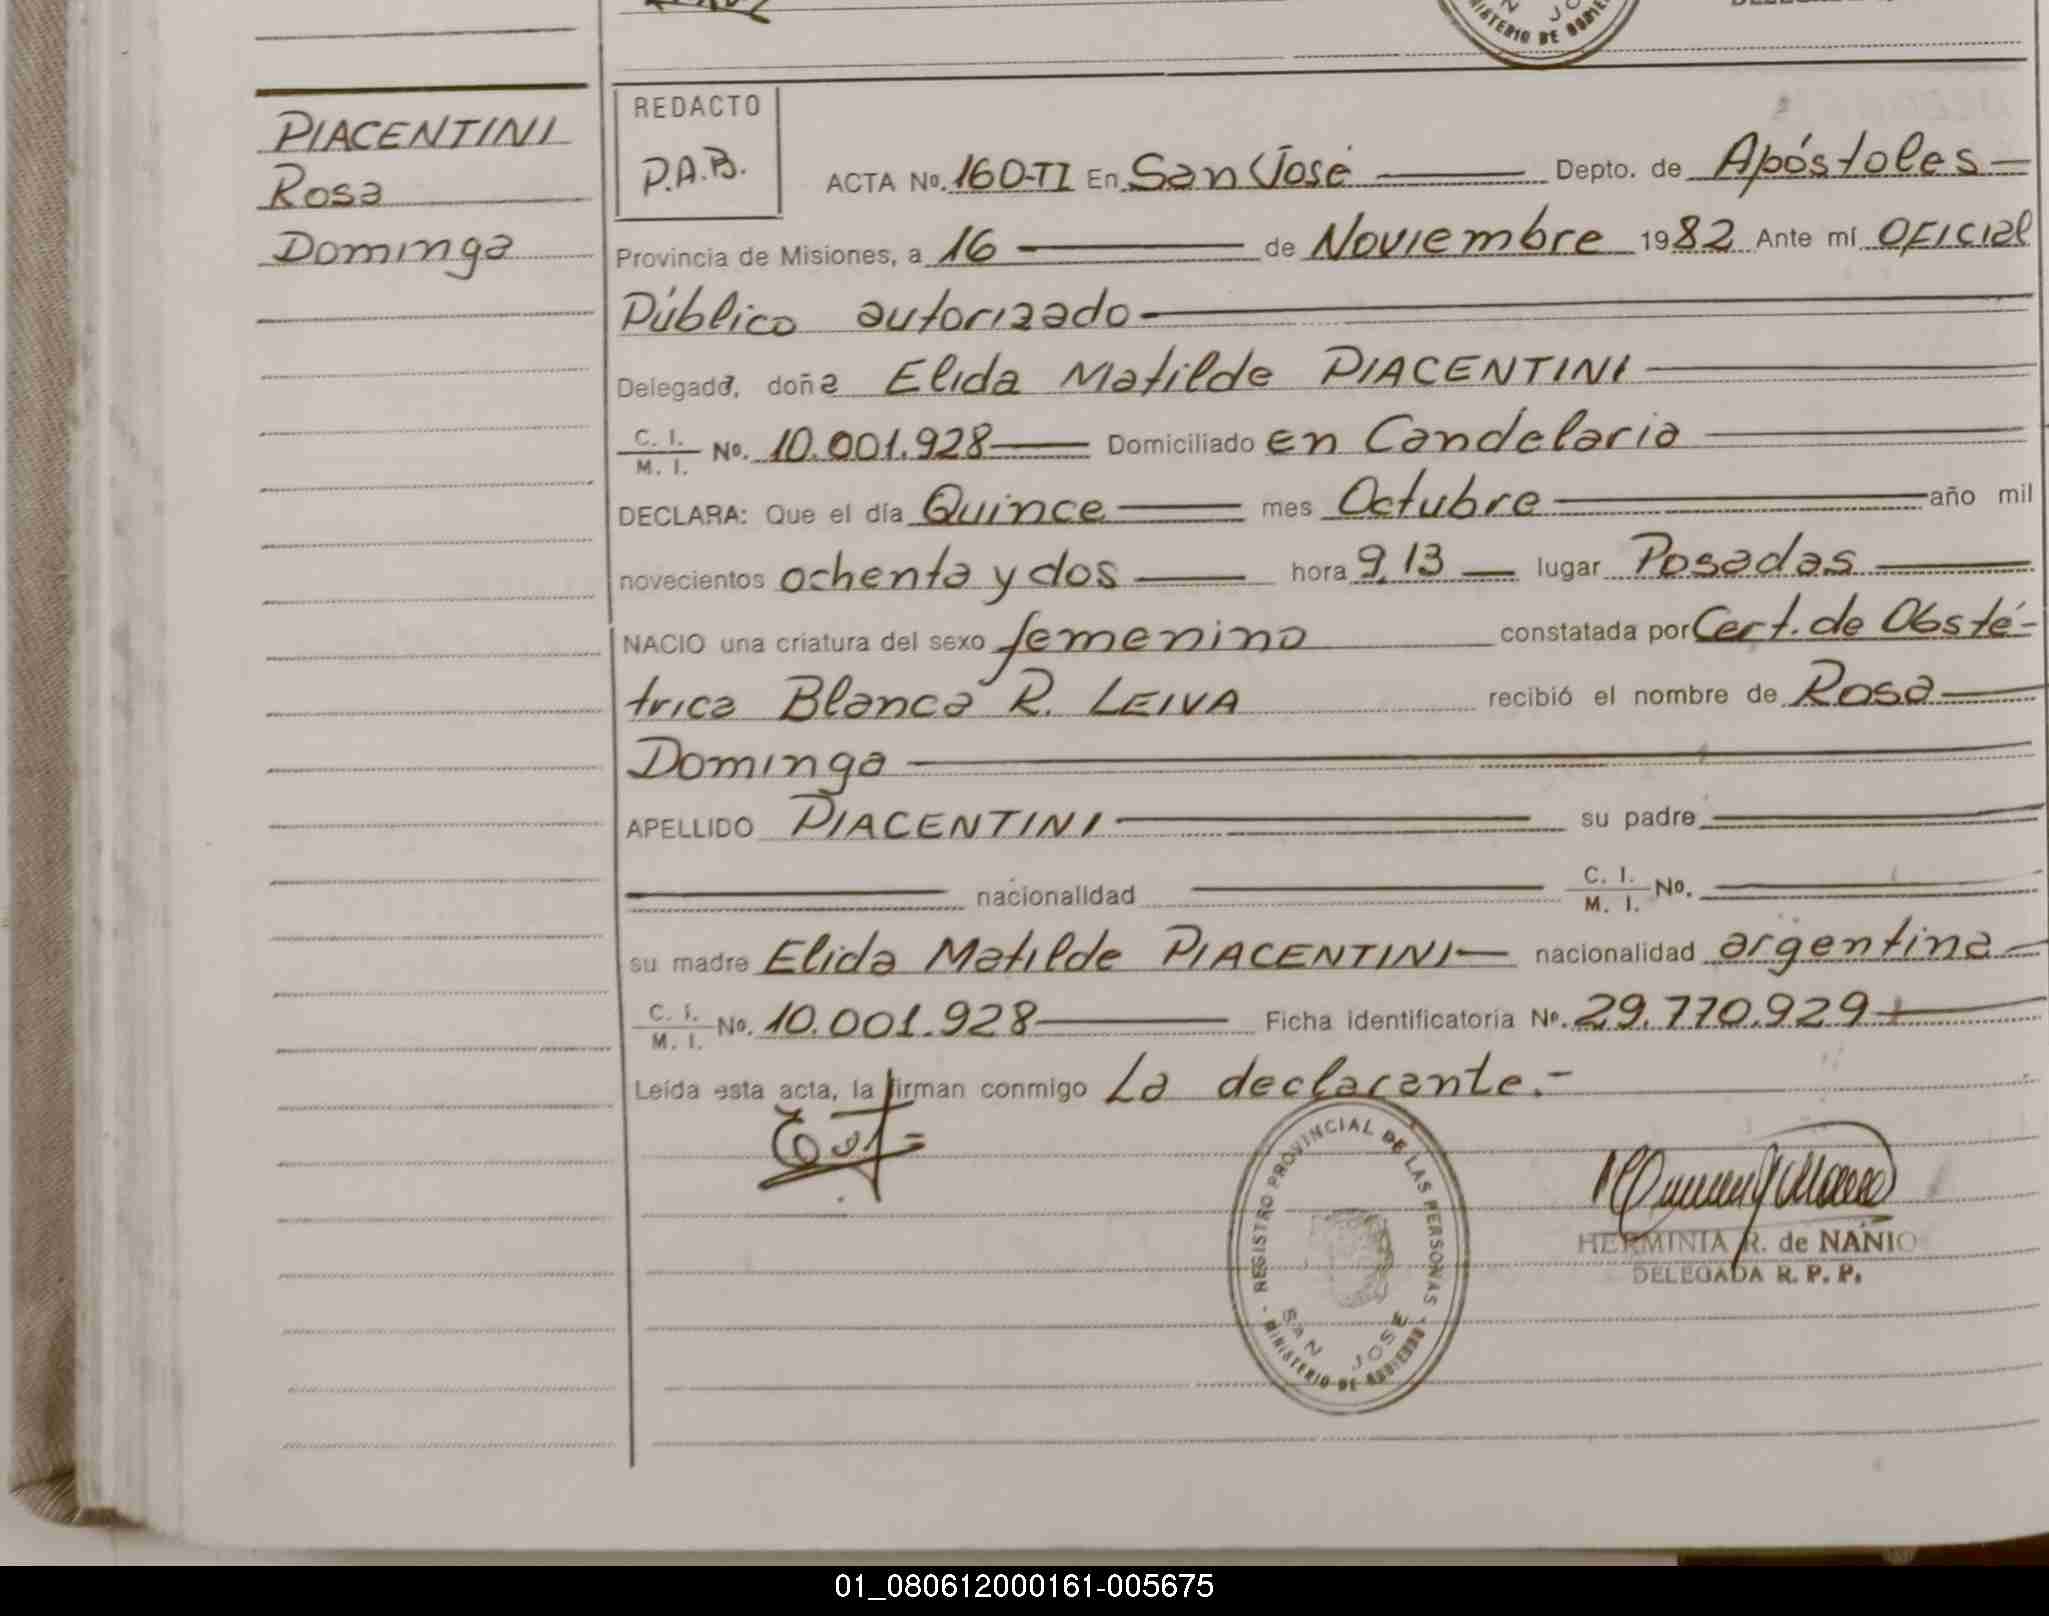 PIACENTINI
Rosa
Dominga
REDACTO
P.A.B.
ACTA No. 160-TI En San José Depto. de Apóstoles
Provincia de Misiones, a 16 de Noviembre 1982 Ante mí OFICIal
Público autorizado
Delegada, doña Elida Matilde PIACENTINI
C. I.
M. I. No. 10.001.928 Domiciliado en Candelaria
DECLARA: Que el día Quince mes Octubre año mil
novecientos ochenta y dos hora 9,13 lugar Posadas
NACIO una criatura del sexo femenino constatada por Cert. de Obsté-
trica Blanca R. LEIVA recibió el nombre de Rosa
Dominga
APELLIDO PIACENTINI su padre
nacionalidad C. I.
M. I. No.
su madre Elida Matilde PIACENTINI nacionalidad argentina
C. I.
M. I. No. 10.001.928 Ficha identificatoria No. 29.770.929
Leída esta acta, la firman conmigo La declarante.-
REGISTRO PROVINCIAL DE LAS PERSONAS
SAN JOSE
MINISTERIO DE GOBIERNO
HERMINIA R. de NANIO
DELEGADA R. P. P.
01_080612000161-005675